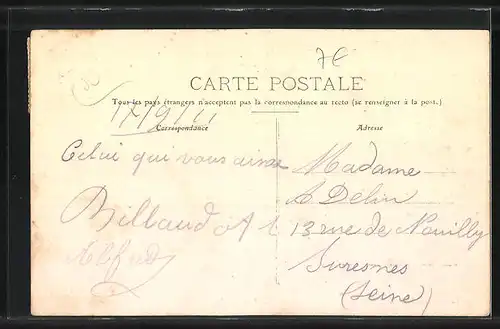 7E
CARTE POSTALE
Tous les pays étrangers n'acceptent pas la correspondance au recto (se renseigner à la post.)
17/9/11
Correspondance
Adresse
Celui qui vous aime
Billaud
Madame
A Délin
13 rue de Nouilly
Suresnes
(Seine)